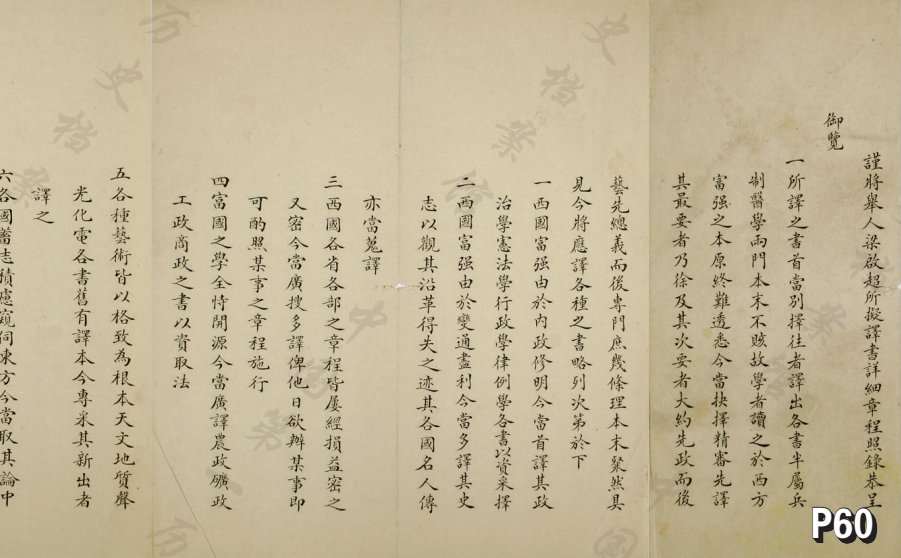 謹將舉人梁啟超所擬譯書詳細章程照錄恭呈
御覽
一所譯之書首當別擇往者譯出各書半屬兵
制醫學兩門本末不賅故學者讀之於西方
富强之本原終難透悉今當抉擇精審先譯
其最要者乃徐及其次要者大約先政而後
藝先總義而後專門庶幾條理本末粲然具
見今將應譯各種之書略列次第於下
一西國富强由於內政修明今當首譯其政
治學憲法學行政學律例學各書以資采擇
二西國富强由於變通盡利今當多譯其史
志以觀其沿革得失之迹其各國名人傳
亦當蒐譯
三西國各省各部之章程皆屢經損益密之
又密今當廣搜多譯俾他日欲辦某事即
可酌照某事之章程施行
四富國之學全恃開源今當廣譯農政礦政
工政商政之書以資取法
五各種藝術皆以格致為根本天文地質聲
光化電各書舊有譯本今專采其新出者
譯之
六各國蓄志積慮窺伺東方今當取其論中
P60